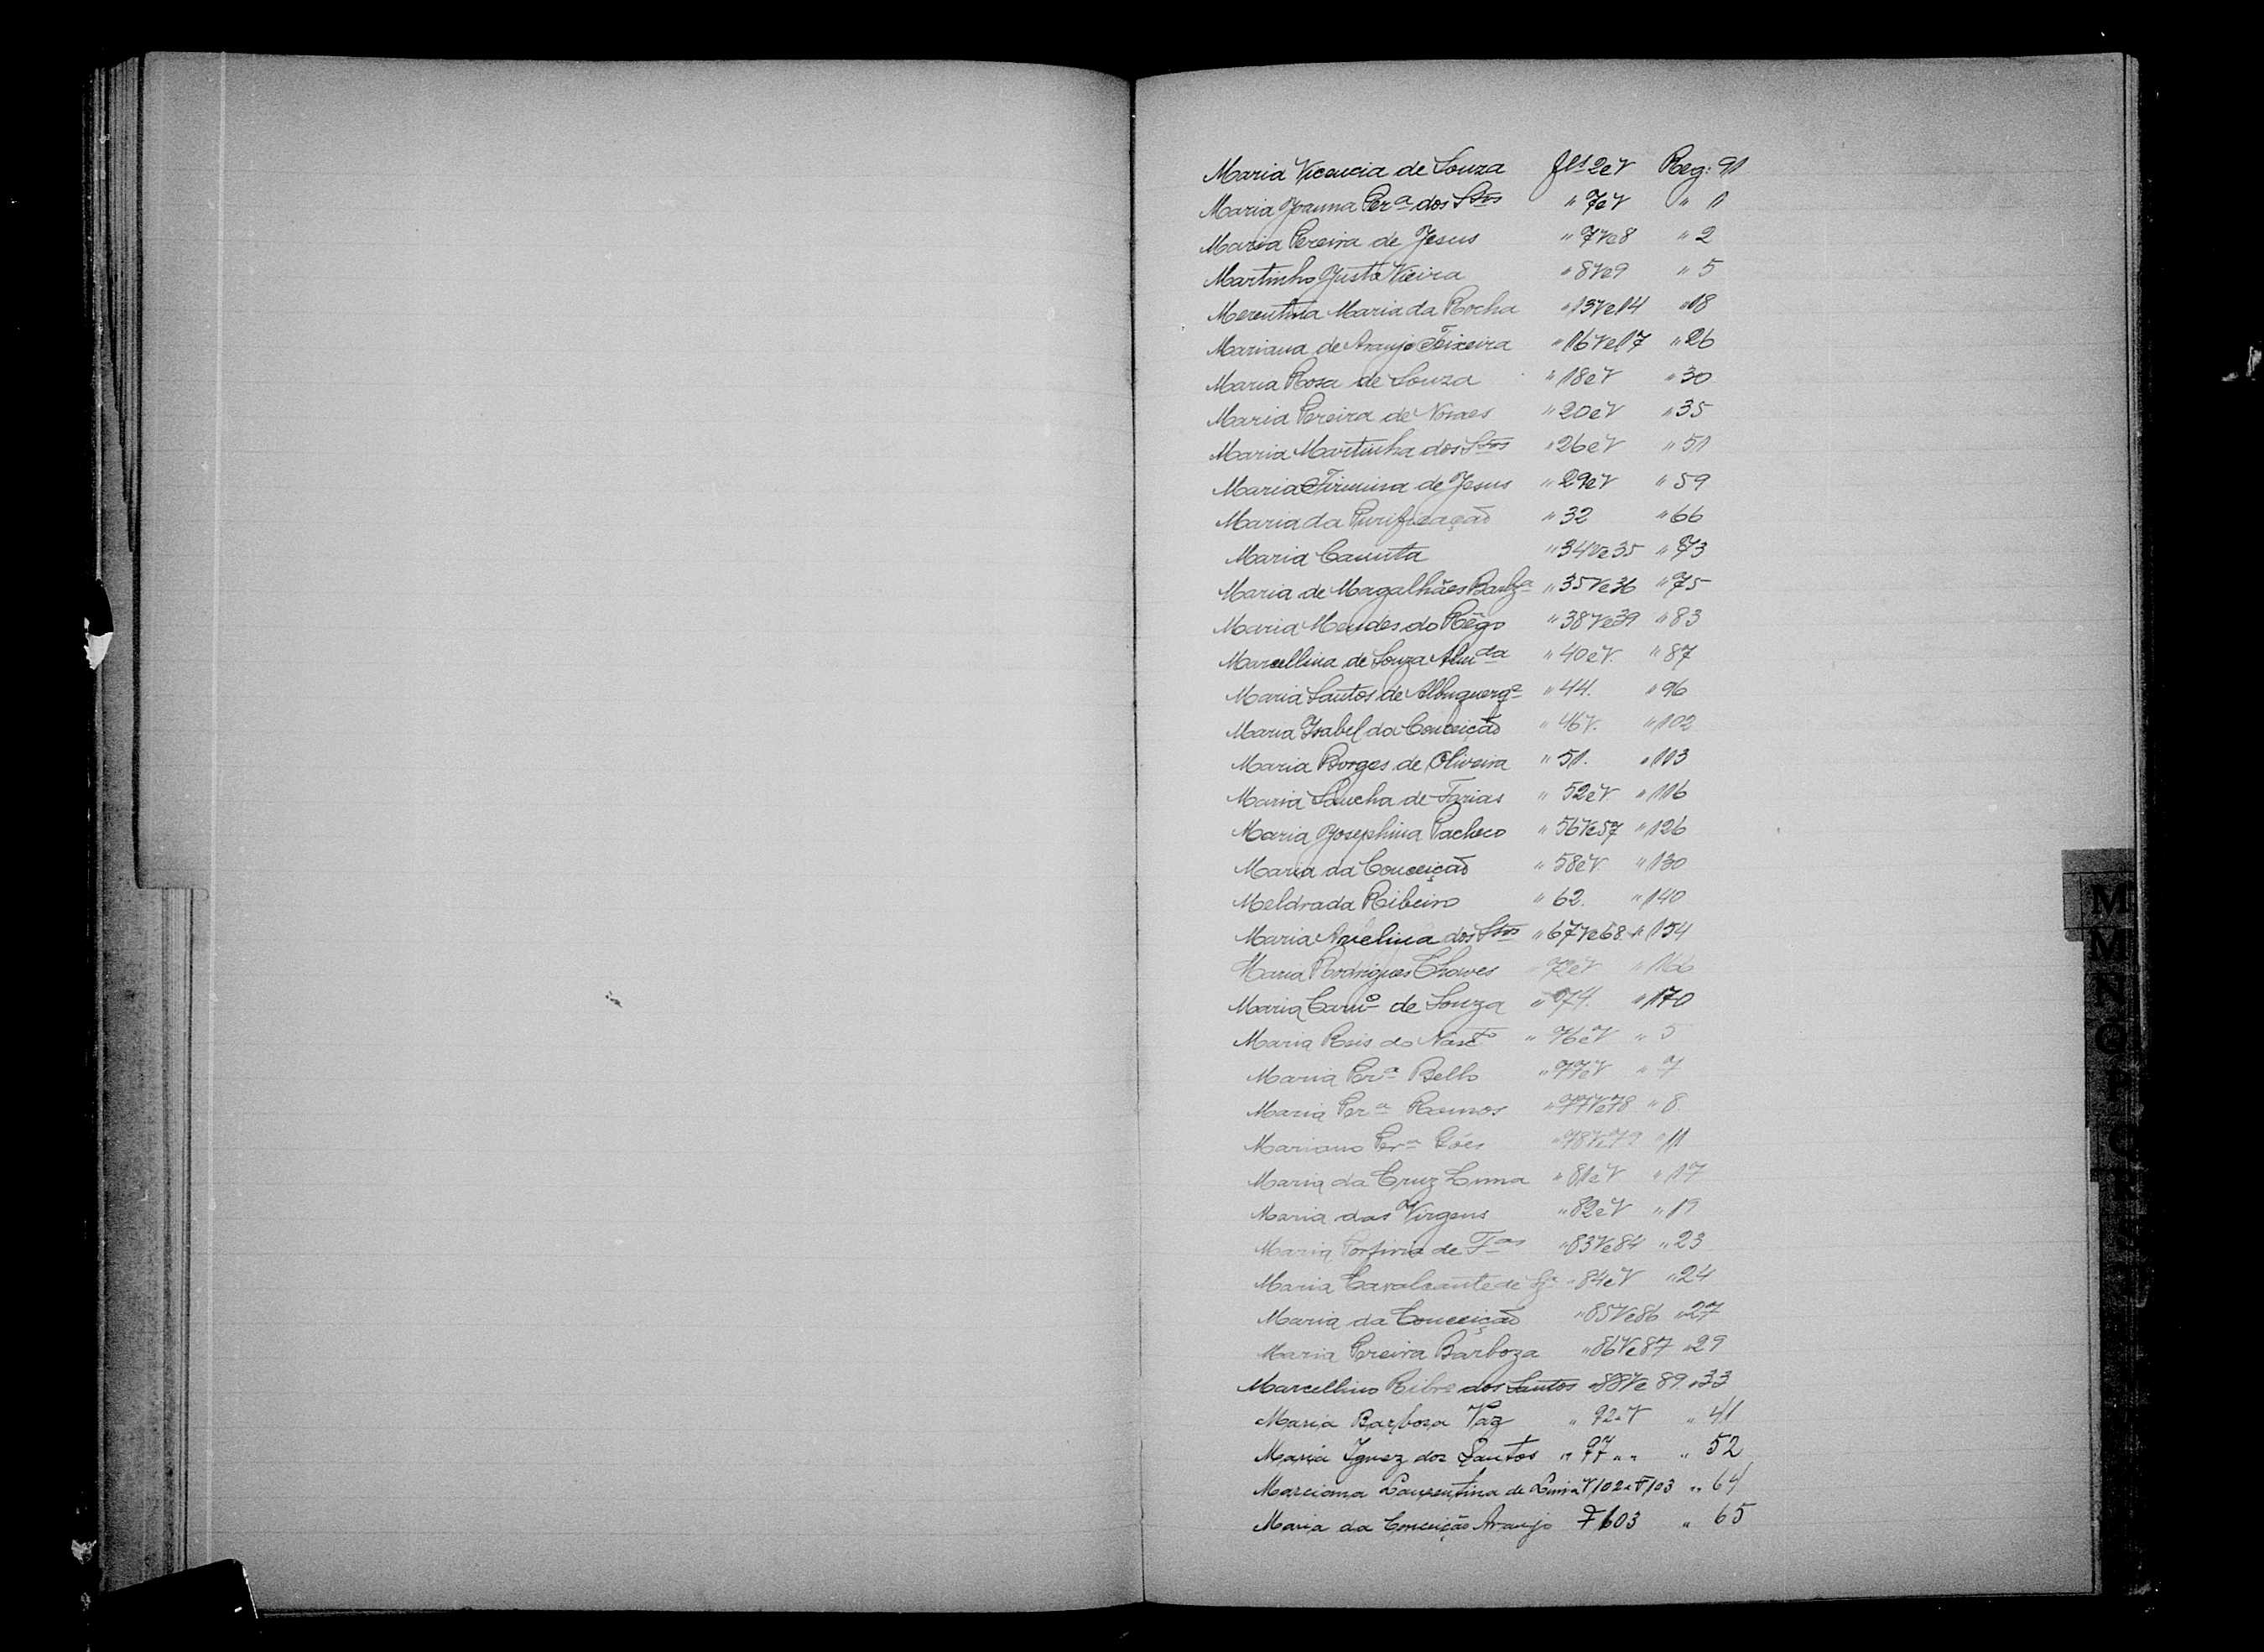 Maria Vicencia de Souza fls 2 e V Reg: 91
Maria Joanna Perª dos Stos " 7 e V " 1
Maria Pereira de Jesus " 7 V e 8 " 2
Martinho Justo Vieira " 8 V e 9 " 5
Merentina Maria da Rocha " 13 V e 14 " 18
Mariana de Araujo Teixeira " 16 V e 17 " 26
Maria Rosa de Souza " 18 e V " 30
Maria Pereira de Novaes " 20 e V " 35
Maria Martinha dos Stos " 26 e V " 51
Maria Firmina de Jesus " 29 e V " 59
Maria da Purificação " 32 " 66
Maria Canuta " 34 V e 35 " 73
Maria de Magalhães Barbzª " 35 V e 36 " 75
Maria Mendes do Rêgo " 38 V e 39 " 83
Marcellina de Souza Almda " 40 e V. " 87
Maria Santos de Albuquerqe " 44. " 96
Maria Isabel da Conceição " 46 V. " 102
Maria Borges de Oliveira " 51. " 113
Maria Sancha de Farias " 52 e V " 116
Maria Josephina Pacheco " 56 V e 57 " 126
Maria da Conceição " 58 e V. " 130
Meldrada Ribeiro " 62. " 140
Maria Avelina dos Stos " 67 V e 68. " 154
Maria Rodrigues Chaves 72 e V " 166
Maria Carnº de Souza " 74. " 170
Maria Reis do Nascto " 76 e V " 5
Maria Perª Bello " 77 e V " 7
Maria Perª Ramos " 77 V e 78 " 8
Mariano Perª Góes " 78 V e 79 " 11
Maria da Cruz Lima " 81 e V " 17
Maria das Virgens " 82 e V " 19
Maria Porfiria de Fas " 83 V e 84 " 23
Maria Cavalcante de Sza " 84 e V " 24
Maria da Conceição " 85 V e 86 " 27
Maria Pereira Barboza " 86 V e 87 " 29
Marcellino Ribrº dos Santos " 88 V e 89. " 33
Maria Barbosa Vaz " 92 e V " 41
Maria Ignez dos Santos " 97 " " " 52
Marciana Laurentina de Lima V 102 e F 103 " 64
Maria da Conceição Araujo F 103 " 65
M
M
N
O